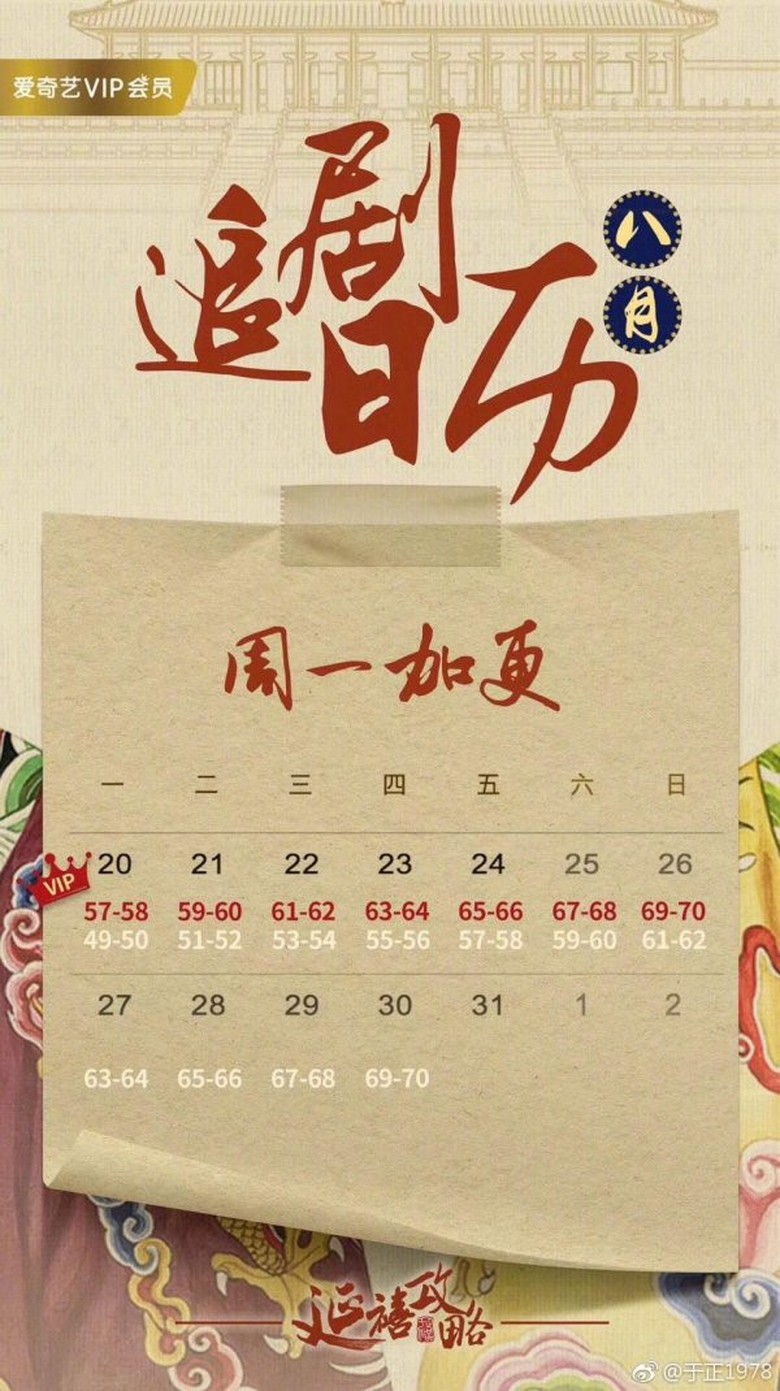 爱奇艺VIP会员
追剧日历
八月
周一加更
一 二 三 四 五 六 日
VIP
20 21 22 23 24 25 26
57-58 59-60 61-62 63-64 65-66 67-68 69-70
49-50 51-52 53-54 55-56 57-58 59-60 61-62
27 28 29 30 31 1 2
63-64 65-66 67-68 69-70
延禧攻略
@于正1978